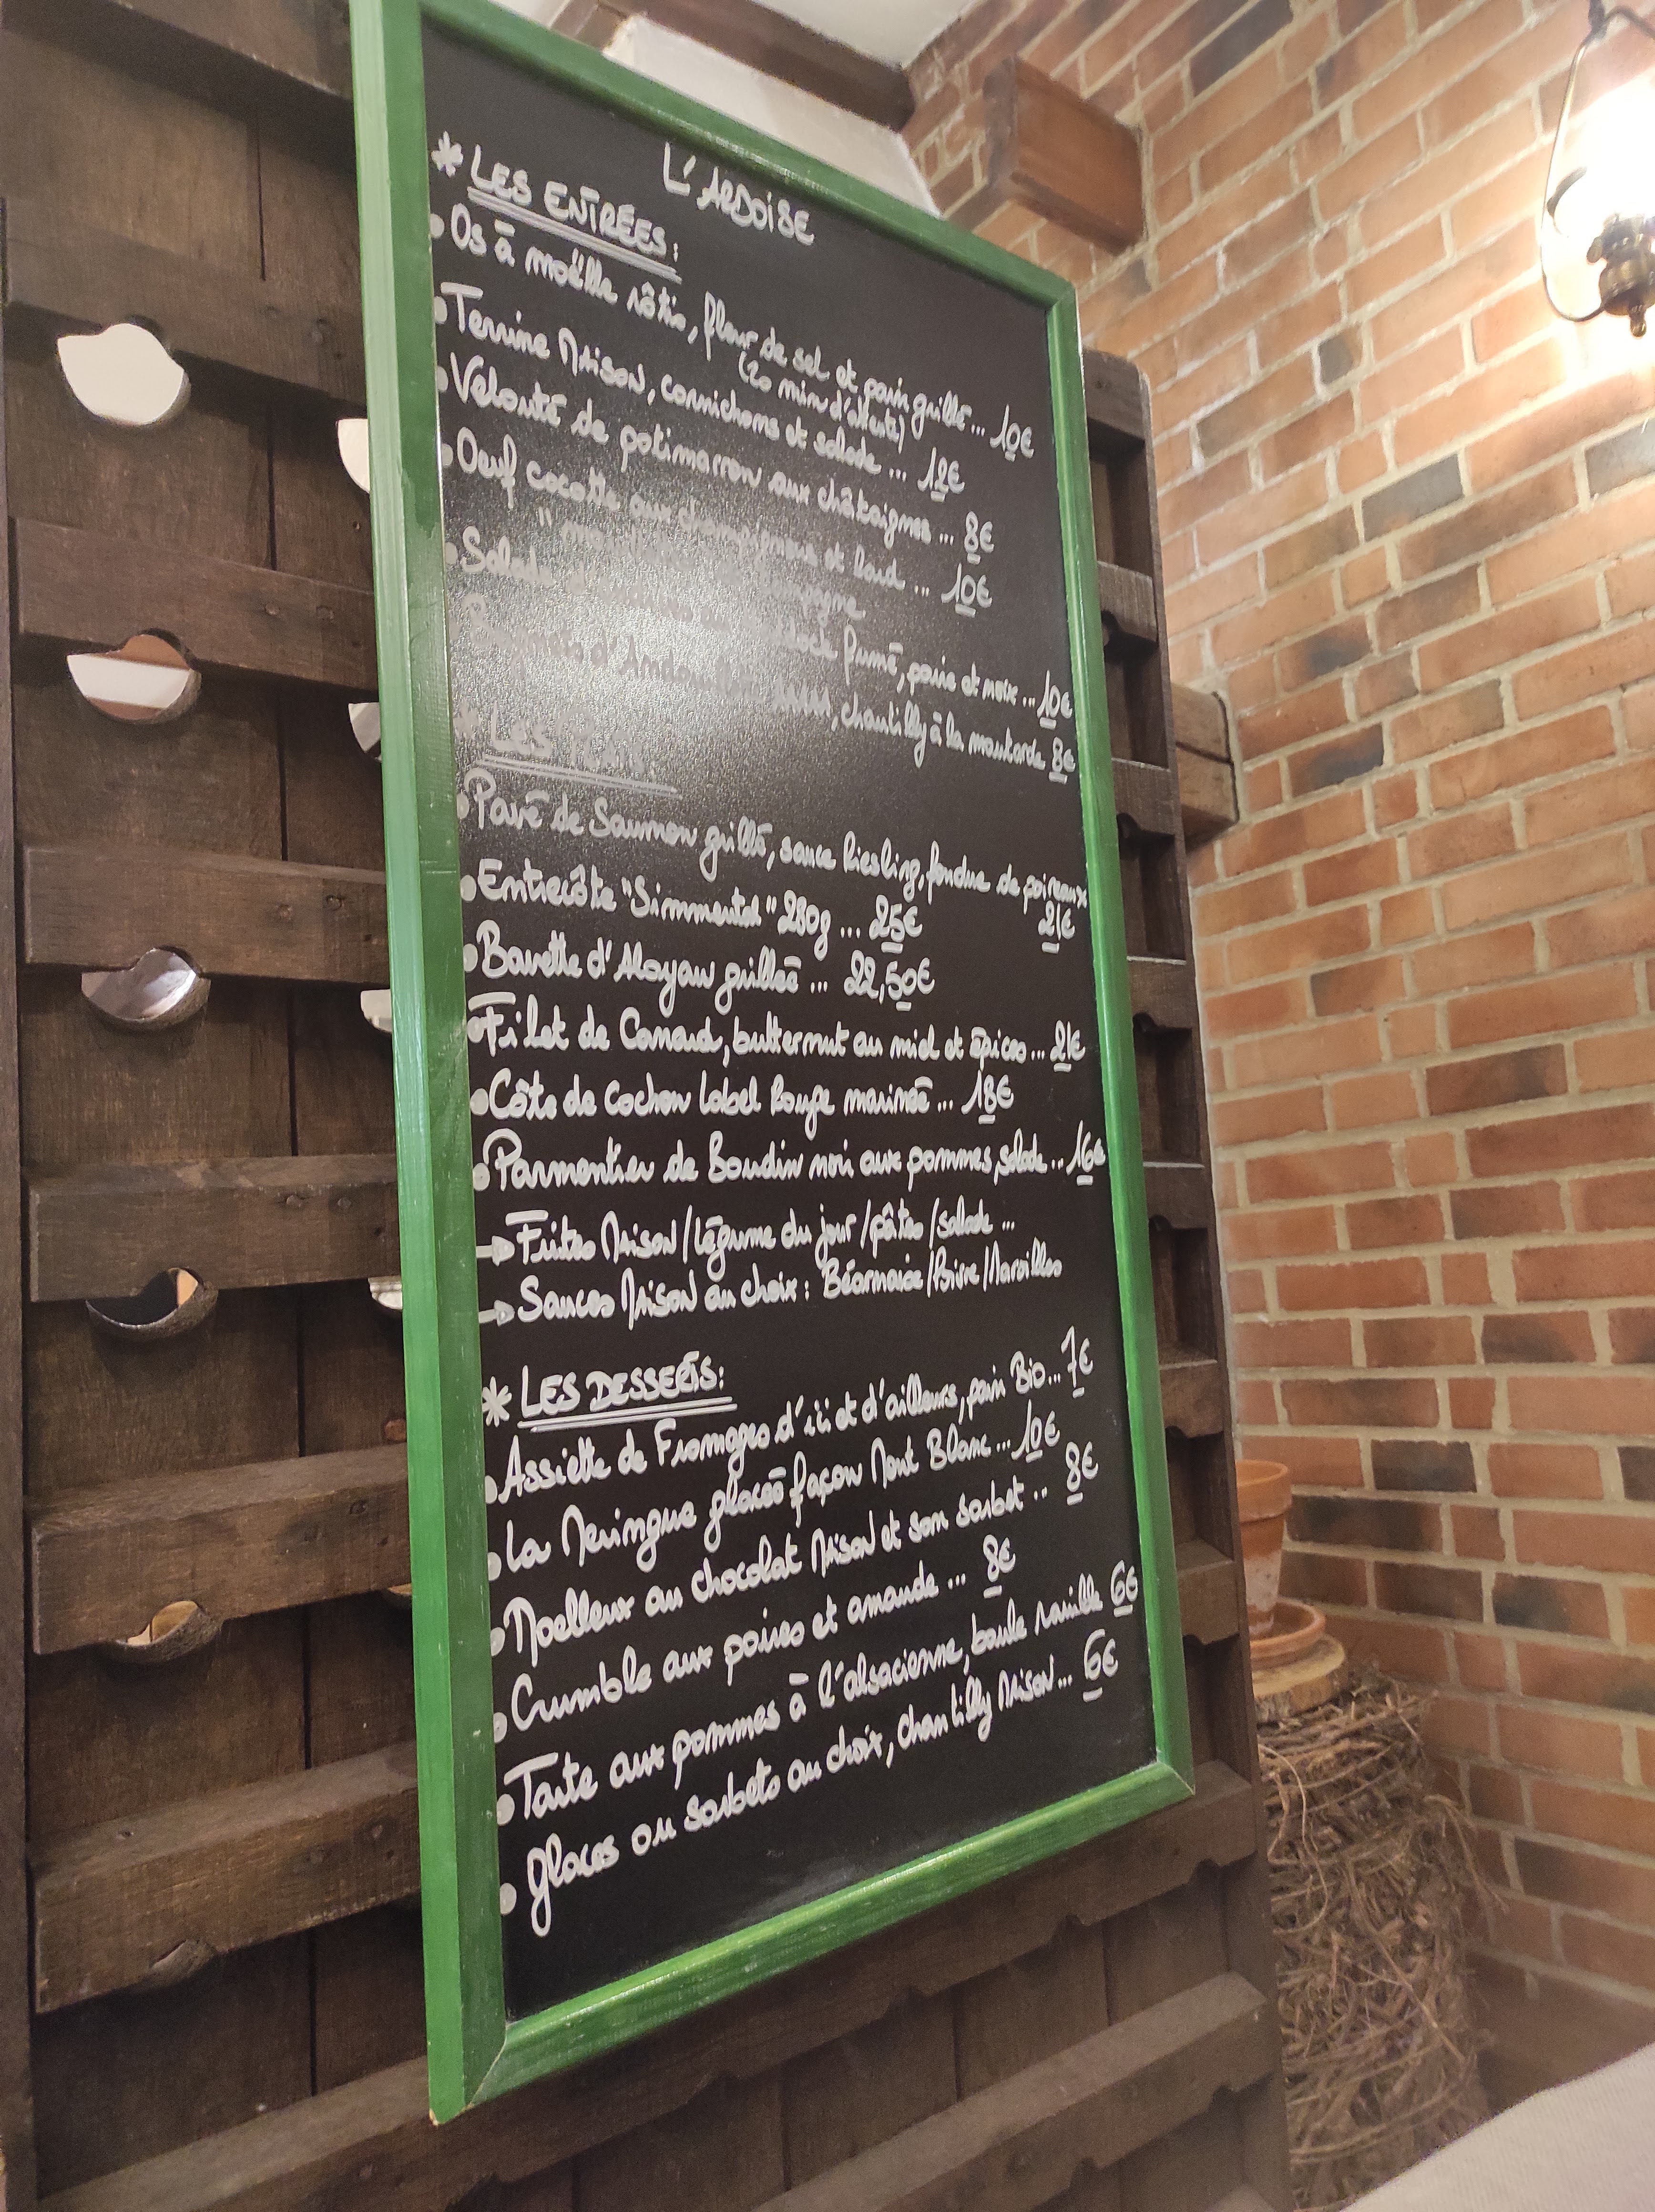 L'ARDOISE
* LES ENTRÉES:
• Os à moëlle rôtis, fleur de sel et pain grillé... 10€
(20 min d'attente)
• Terrine Maison, cornichons et salade ... 12€
• Velouté de potimarron aux châtaignes ... 8€
• Oeuf cocotte aux champignons et lard ... 10€
• Salade fumé, poire et noix ... 10€
d'Andouillette AAAAA, chantilly à la moutarde 8€
* LES
• Pavé de Saumon grillé, sauce Riesling, fondue de poireaux
21€
• Entrecôte "Simmental" 280g ... 25€
• Bavette d'Aloyau grillée ... 22,50€
• Filet de Canard, butternut au miel et épices ... 21€
• Côte de Cochon Label Rouge marinée ... 18€
• Parmentier de Boudin noir aux pommes, salade .. 16€
→ Frites Maison/Légume du jour/pâtes/salade ...
→ Sauces Maison au choix: Béarnaise/Poivre/Maroilles
* LES DESSERTS:
• Assiette de Fromages d'ici et d'ailleurs, pain Bio... 7€
• La Meringue glacée façon Mont Blanc ... 10€
• Moelleux au chocolat Maison et son sorbet .. 8€
• Crumble aux poires et amande ... 8€
• Tarte aux pommes à l'alsacienne, boule vanille 6€
• Glaces ou sorbets au choix, chantilly Maison... 6€